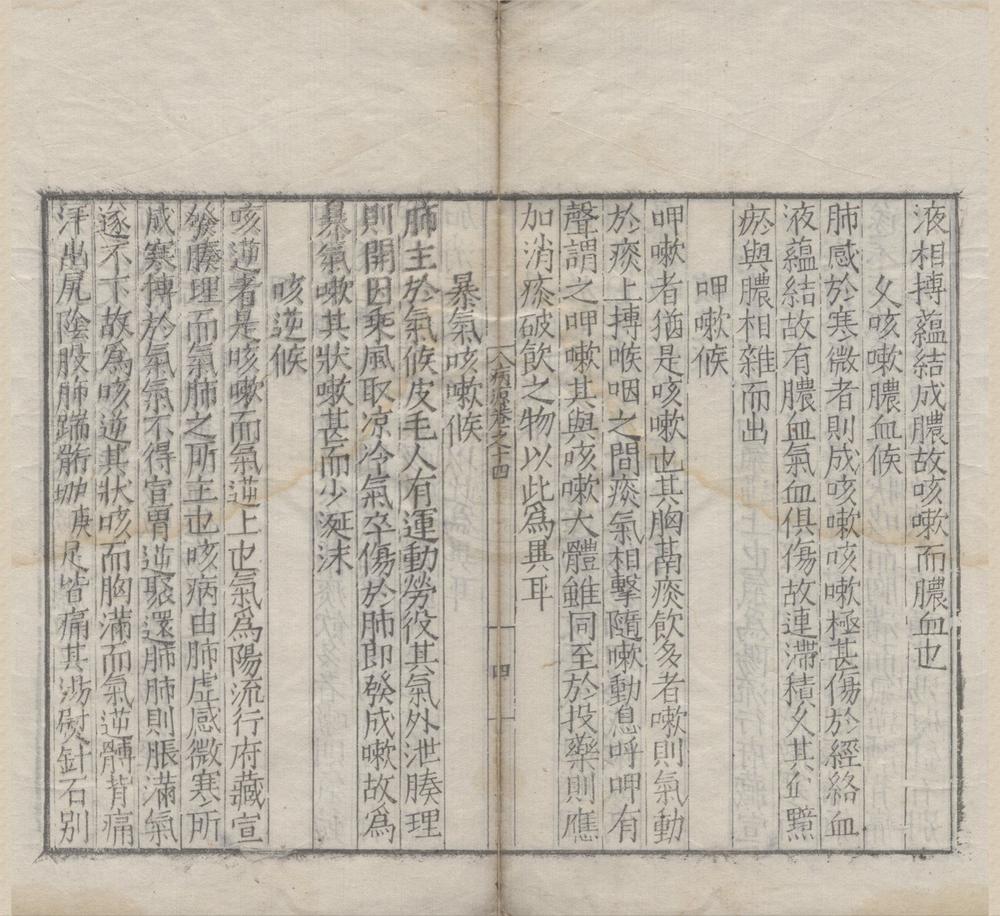 液相摶蘊結成膿故咳嗽而膿血也
乆咳嗽膿血候
肺感於寒微者則成咳嗽咳嗽極甚傷於經絡血
液蘊結故有膿血氣血俱傷故連滯積乆其血黯
瘀與膿相雜而出
呷嗽候
呷嗽者猶是咳嗽也其胸鬲痰飲多者嗽則氣動
於痰上摶喉咽之間痰氣相擊隨嗽動息呼呷有
聲謂之呷嗽其與咳嗽大體雖同至於投藥則應
加消痰破飲之物以此為異耳
病源卷之十四
四
暴氣咳嗽候
肺主於氣候皮毛人有運動勞役其氣外泄腠理
則開因乘風取凉冷氣卒傷於肺即發成嗽故為
暴氣嗽其狀嗽甚而少涎沫
咳逆候
咳逆者是咳嗽而氣逆上也氣為陽流行府藏宣
發腠理而氣肺之所主也咳病由肺虛感微寒所
成寒摶於氣氣不得宣胃逆聚還肺肺則脹滿氣
遂不下故為咳逆其狀咳而胸滿而氣逆髆背痛
汗出尻陰股腨踹䯒庚足皆痛其湯熨針石別